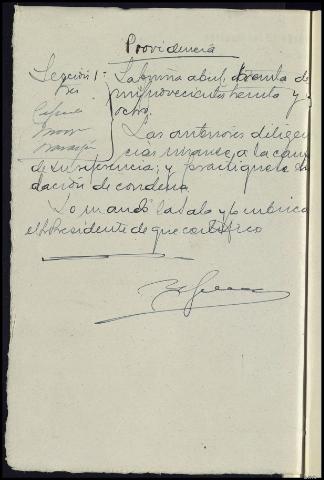 Providencia
Sección 1ª La Coruña abril treinta de
mil novecientos treinta y
ocho.
Las anteriores diligen
cias únanse a la causa
de su referencia; y practíquese li
dación de condena.
Lo mandó la Sala y rubrica
el Sr Presidente de que certifico